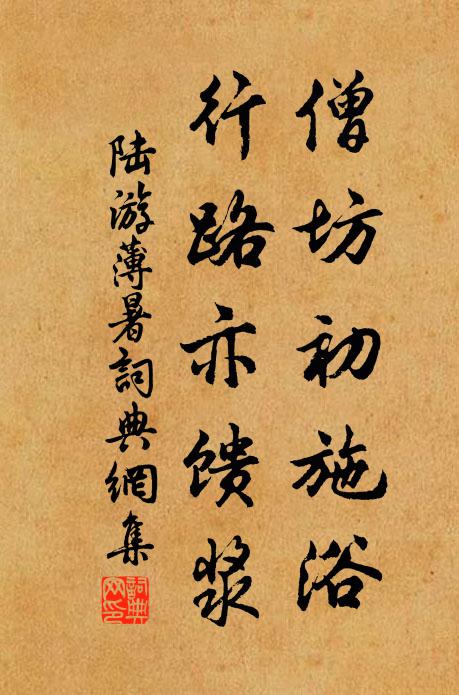 僧坊初施浴
行路亦馈浆
陆游薄暑詞典網集
詞典
网印